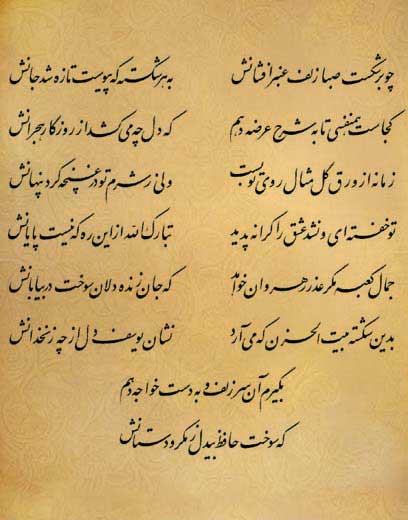 چو برشکست صبا زلف عنبرافشانش به هر شکسته که پیوست تازه شد جانش
کجاست همنفسی تا به شرح عرضه دهم که دل چه می کشد از روزگار هجرانش
زمانه از ورق گل مثال روی تو بست ولی ز شرم تو در غنچه کرد پنهانش
تو خفته ای و نشد عشق را کرانه پدید تبارک الله از این ره که نیست پایانش
جمال کعبه مگر عذر رهروان خواهد که جان زنده دلان سوخت در بیابانش
بدین شکسته بیت الحزن که می آرد نشان یوسف دل از چه زنخدانش
بگیرم آن سر زلف و به دست خواجه دهم
که سوخت حافظ بیدل ز مکر و دستانش